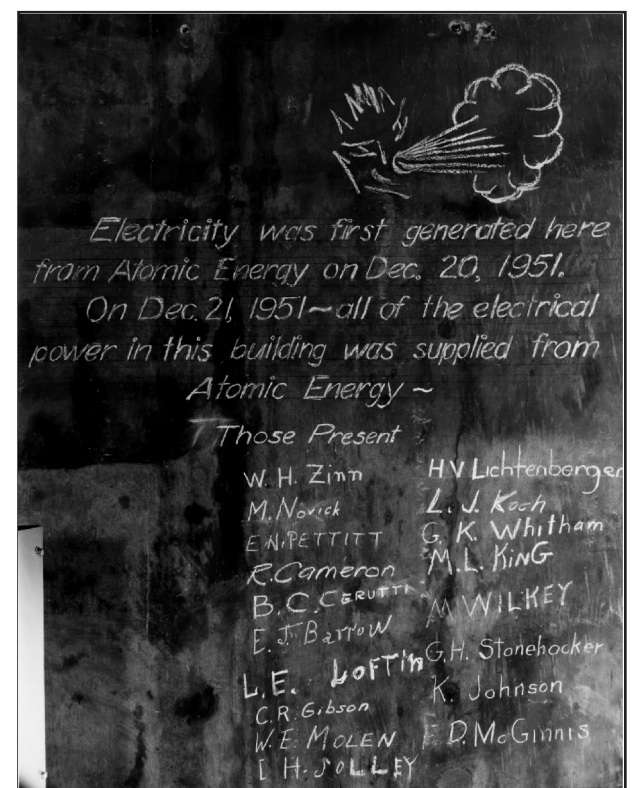 Electricity was first generated here
from Atomic Energy on Dec. 20, 1951.
On Dec. 21, 1951~all of the electrical
power in this building was supplied from
Atomic Energy ~
Those Present
W. H. Zinn
M. Novick
E.N. PETTITT
R. Cameron
B. C. CERUTTI
E. J. Barrow
L. E. LOFTin
C. R. Gibson
W. E. MOLEN
H. JOLLEY
H V Lichtenberger
L. J. Koch
G. K. Whitham
M. L. KinG
M WILKEY
G. H. Stonehocker
K. Johnson
D. McGinnis